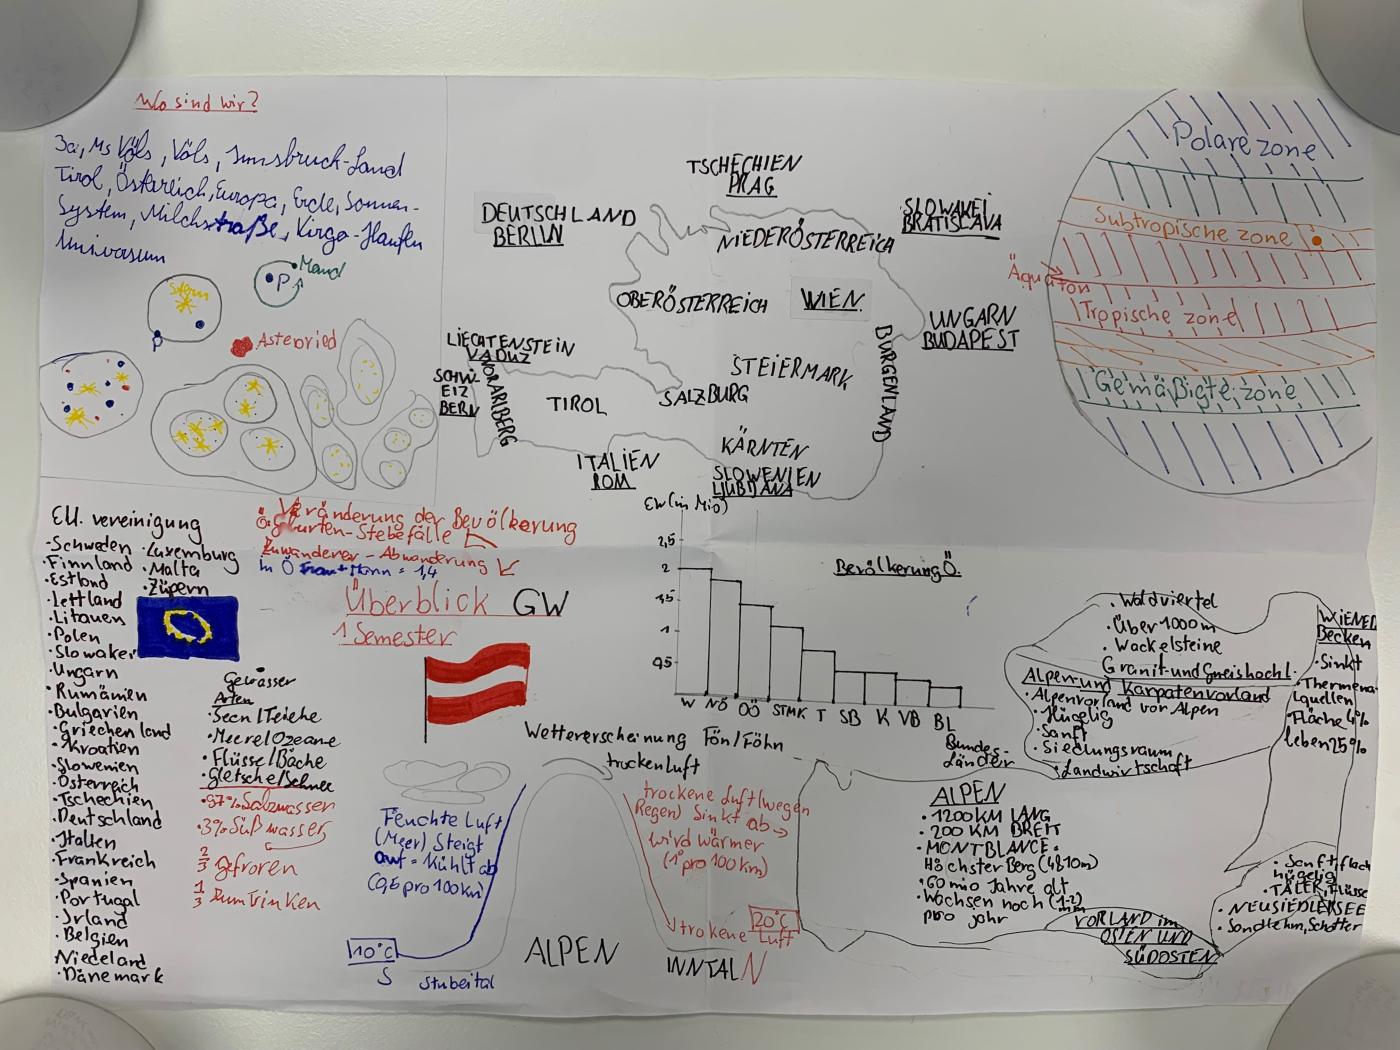 Wo sind wir?
3a, Ms Völs, Völs, Innsbruck-Land
Tirol, Österreich, Europa, Erde, Sonnen-
System, Milchstraße, Virgo-Haufen
Univasum
Stern
P
Mand
P
Asteoried
TSCHECHIEN
PRAG
DEUTSCHLAND
BERLIN
SLOWAKEI
BRATISLAVA
NIEDERÖSTERREICH
OBERÖSTERREICH
WIEN
UNGARN
BUDAPEST
LIECHTENSTEIN
VADUZ
SCHW-
EIZ
BERN
VORARLBERG
TIROL
SALZBURG
STEIERMARK
BURGENLAND
KÄRNTEN
ITALIEN
ROM
SLOWENIEN
LJUBLJANA
Polare zone
Subtropische zone
Äquator
Tropische zone
Gemäßigte zone
EU. vereinigung
-Schweden
·Finnland
·Estland
·Lettland
·Litauen
·Polen
·Slowakei
·Ungarn
·Rumänien
·Bulgarien
·Griechenland
·Kroatien
·Slowenien
·Österreich
·Tschechien
·Deutschland
·Italien
·Frankreich
·Spanien
·Portugal
·Irland
·Belgien
·Niedeland
·Dänemark
·Luxemburg
·Malta
·Züpern
Veränderung der Bevölkerung
Geburten-Stebefälle
Zuwanderer - Abwanderung
In Ö Frau + Mann = 1,4
Überblick GW
1 Semester
Gewässer
Arten
·Seen/Teiche
·Meere/Ozeane
·Flüsse/Bäche
·Gletsche/Schnee
·97% Salzwasser
·3% Süßwasser
2/3 gefroren
1/3 zum Trinken
EW (in Mio)
2,5
2
1,5
1
0,5
Bevölkerung Ö.
W NÖ OÖ STMK T SB K VB BL
Bundes-
länder
Wettererscheinung Fön/Föhn
trockenluft
Feuchte Luft
(Meer) Steigt
auf = Kühlt ab
(0,5 pro 100 km)
trockene Luft (wegen
Regen) Sinkt ab →
wird wärmer
(1° pro 100 km)
trokene Luft
20°C
10°C
S
Stubeital
ALPEN
INNTAL N
· Waldviertel
· Über 1000 m
· Wackelsteine
Granit-und Gneishochl.
Alpen-und Karpatenvorland
· Alpenvorland vor Alpen
· Hügelig
· Sanft
· Siedlungsraum
· Landwirtschaft
WIENER
Becken
· Sinkt
· Thermena
lquellen
· Fläche 4%
leben 25%
ALPEN
· 1200 KM LANG
· 200 KM BREIT
· MONTBLANCE
Höchster Berg (4810m)
· 60 mio Jahre alt
· Wachsen noch (1-2)
mm
pro jahr
VORLAND im
OSTEN UND
SÜDOSTEN
· Sanft, flach
hügelig
· TÄLER, Flüsse
· NEUSIEDLERSEE
· Sandlehm, Schotter